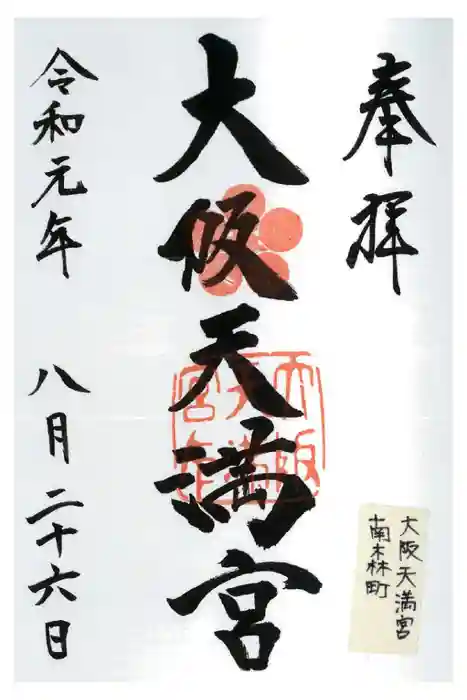 奉拝
大阪天満宮
大阪
天満
令和元年 八月二十六日
大阪天満宮
南森町